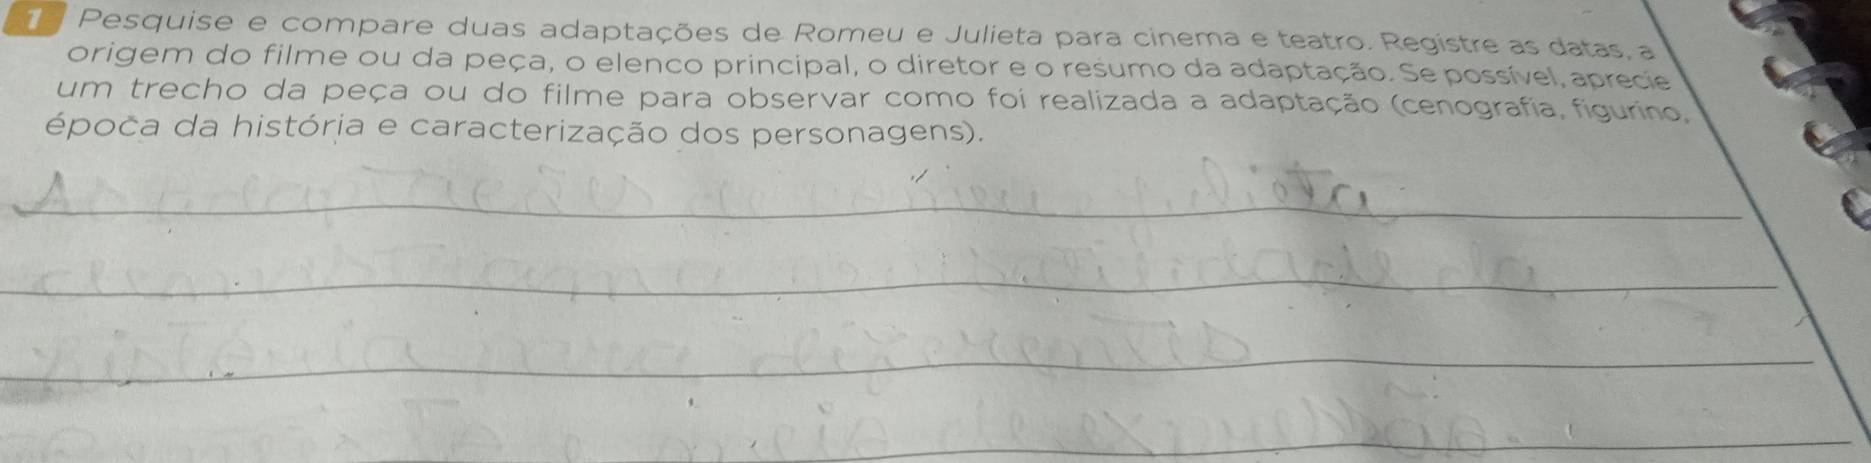 1 Pesquise e compare duas adaptações de Romeu e Julieta para cinema e teatro. Registre as datas, a
origem do filme ou da peça, o elenco principal, o diretor e o resumo da adaptação. Se possível, aprecie
um trecho da peça ou do filme para observar como foi realizada a adaptação (cenografia, figurino,
época da história e caracterização dos personagens).
As adaptações de romeu e juliota
da
em diferentes
e meio de expressão.